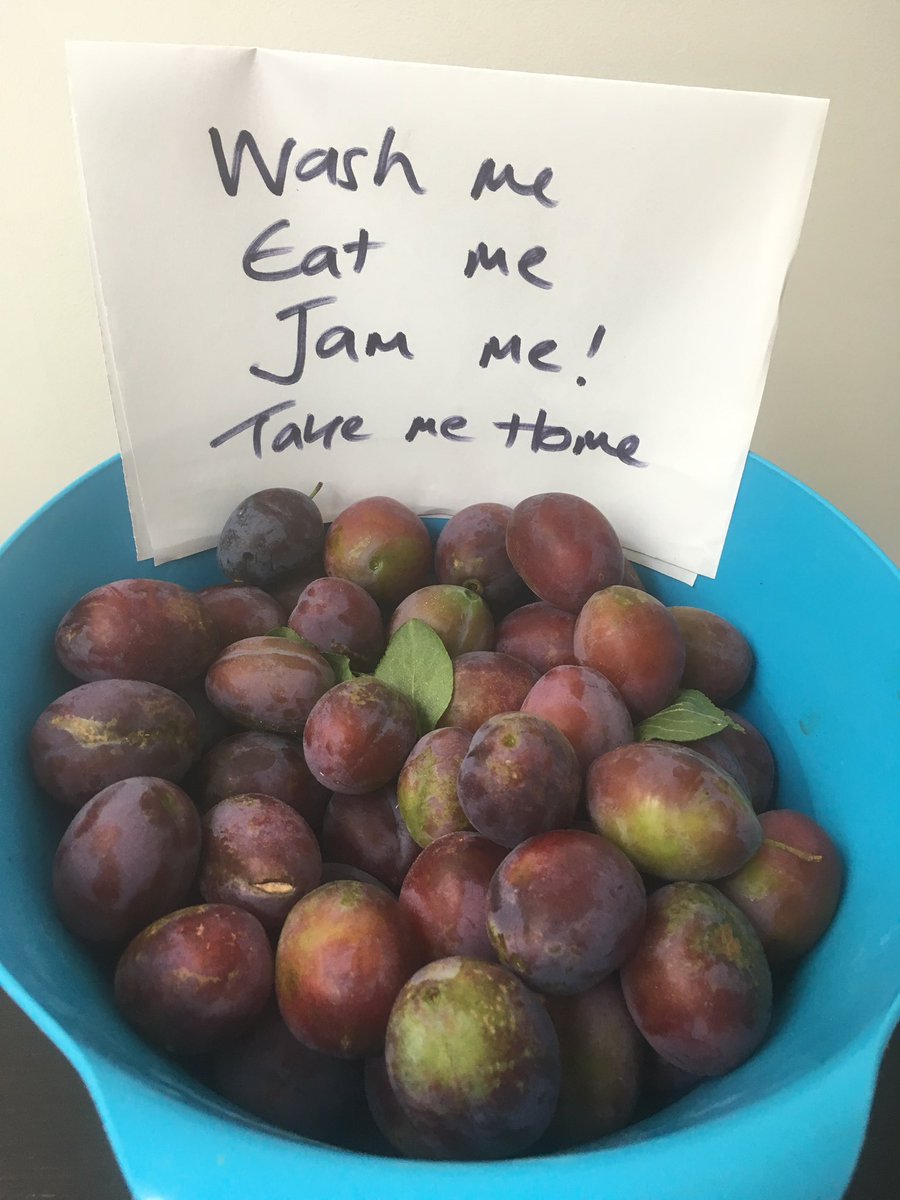 Wash me
Eat me
Jam me!
Take me Home